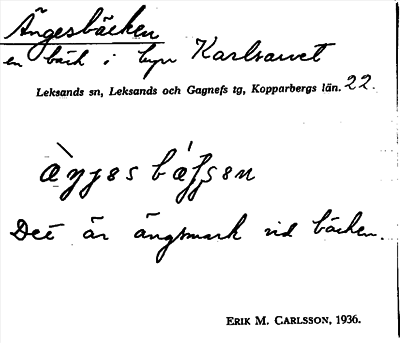 Ängesbäcken
en bäck i byn Karlsarvet
Leksands sn, Leksands och Gagnefs tg, Kopparbergs län. 22.
Det är ängsmark vid bäcken.
ERIK M. CARLSSON, 1936.